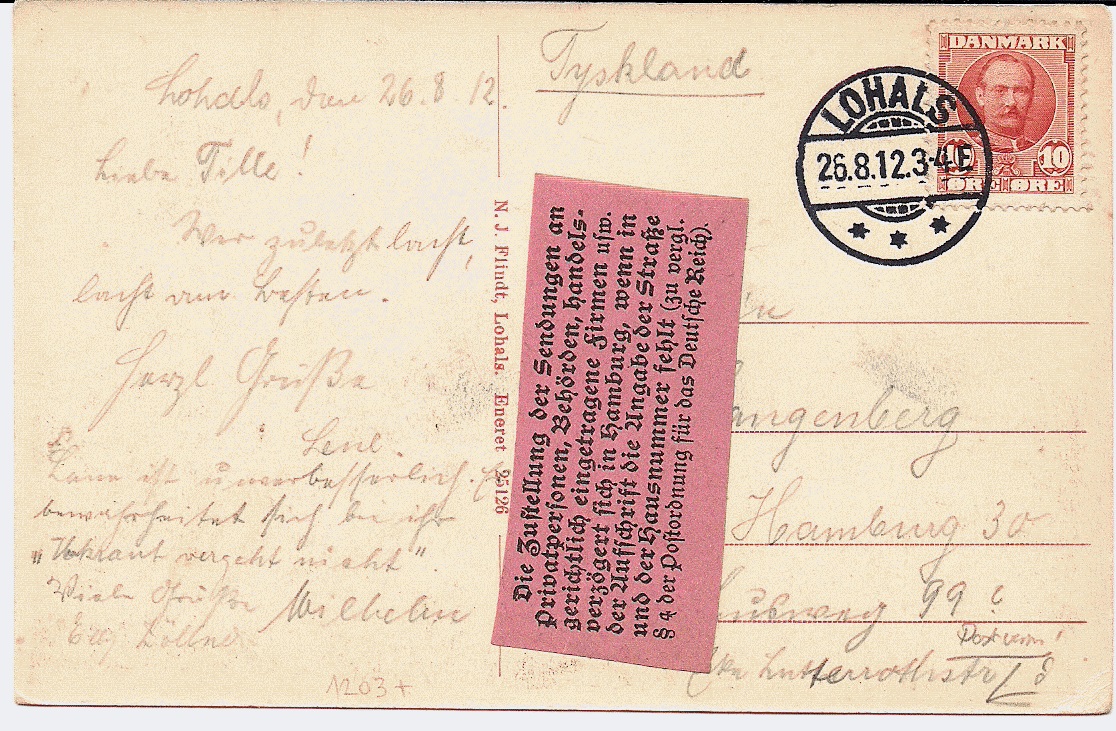 Lohals, den 26.8.12.
Liebe Tille!
Wer zuletzt lacht,
lacht am besten.
Herzl Grüße
Lene.
ist unverbesserlich.
bewahrheitet sich bei ihr
„Unkraut vergeht nicht".
Viele Grüße Wilhelm
Tyskland
DANMARK
10 10
ØRE ØRE
LOHALS
26.8.12.3-4 E
N. J. Flindt, Lohals. Eneret 25126
Die Zustellung der Sendungen an
Privatpersonen, Behörden, handels-
gerichtlich eingetragene Firmen usw.
verzögert sich in Hamburg, wenn in
der Aufschrift die Angabe der Straße
und der Hausnummer fehlt (zu vergl.
§ 4 der Postordnung für das Deutsche Reich).
angenberg
Hamburg 30
99
Lutterrothstr
1203+